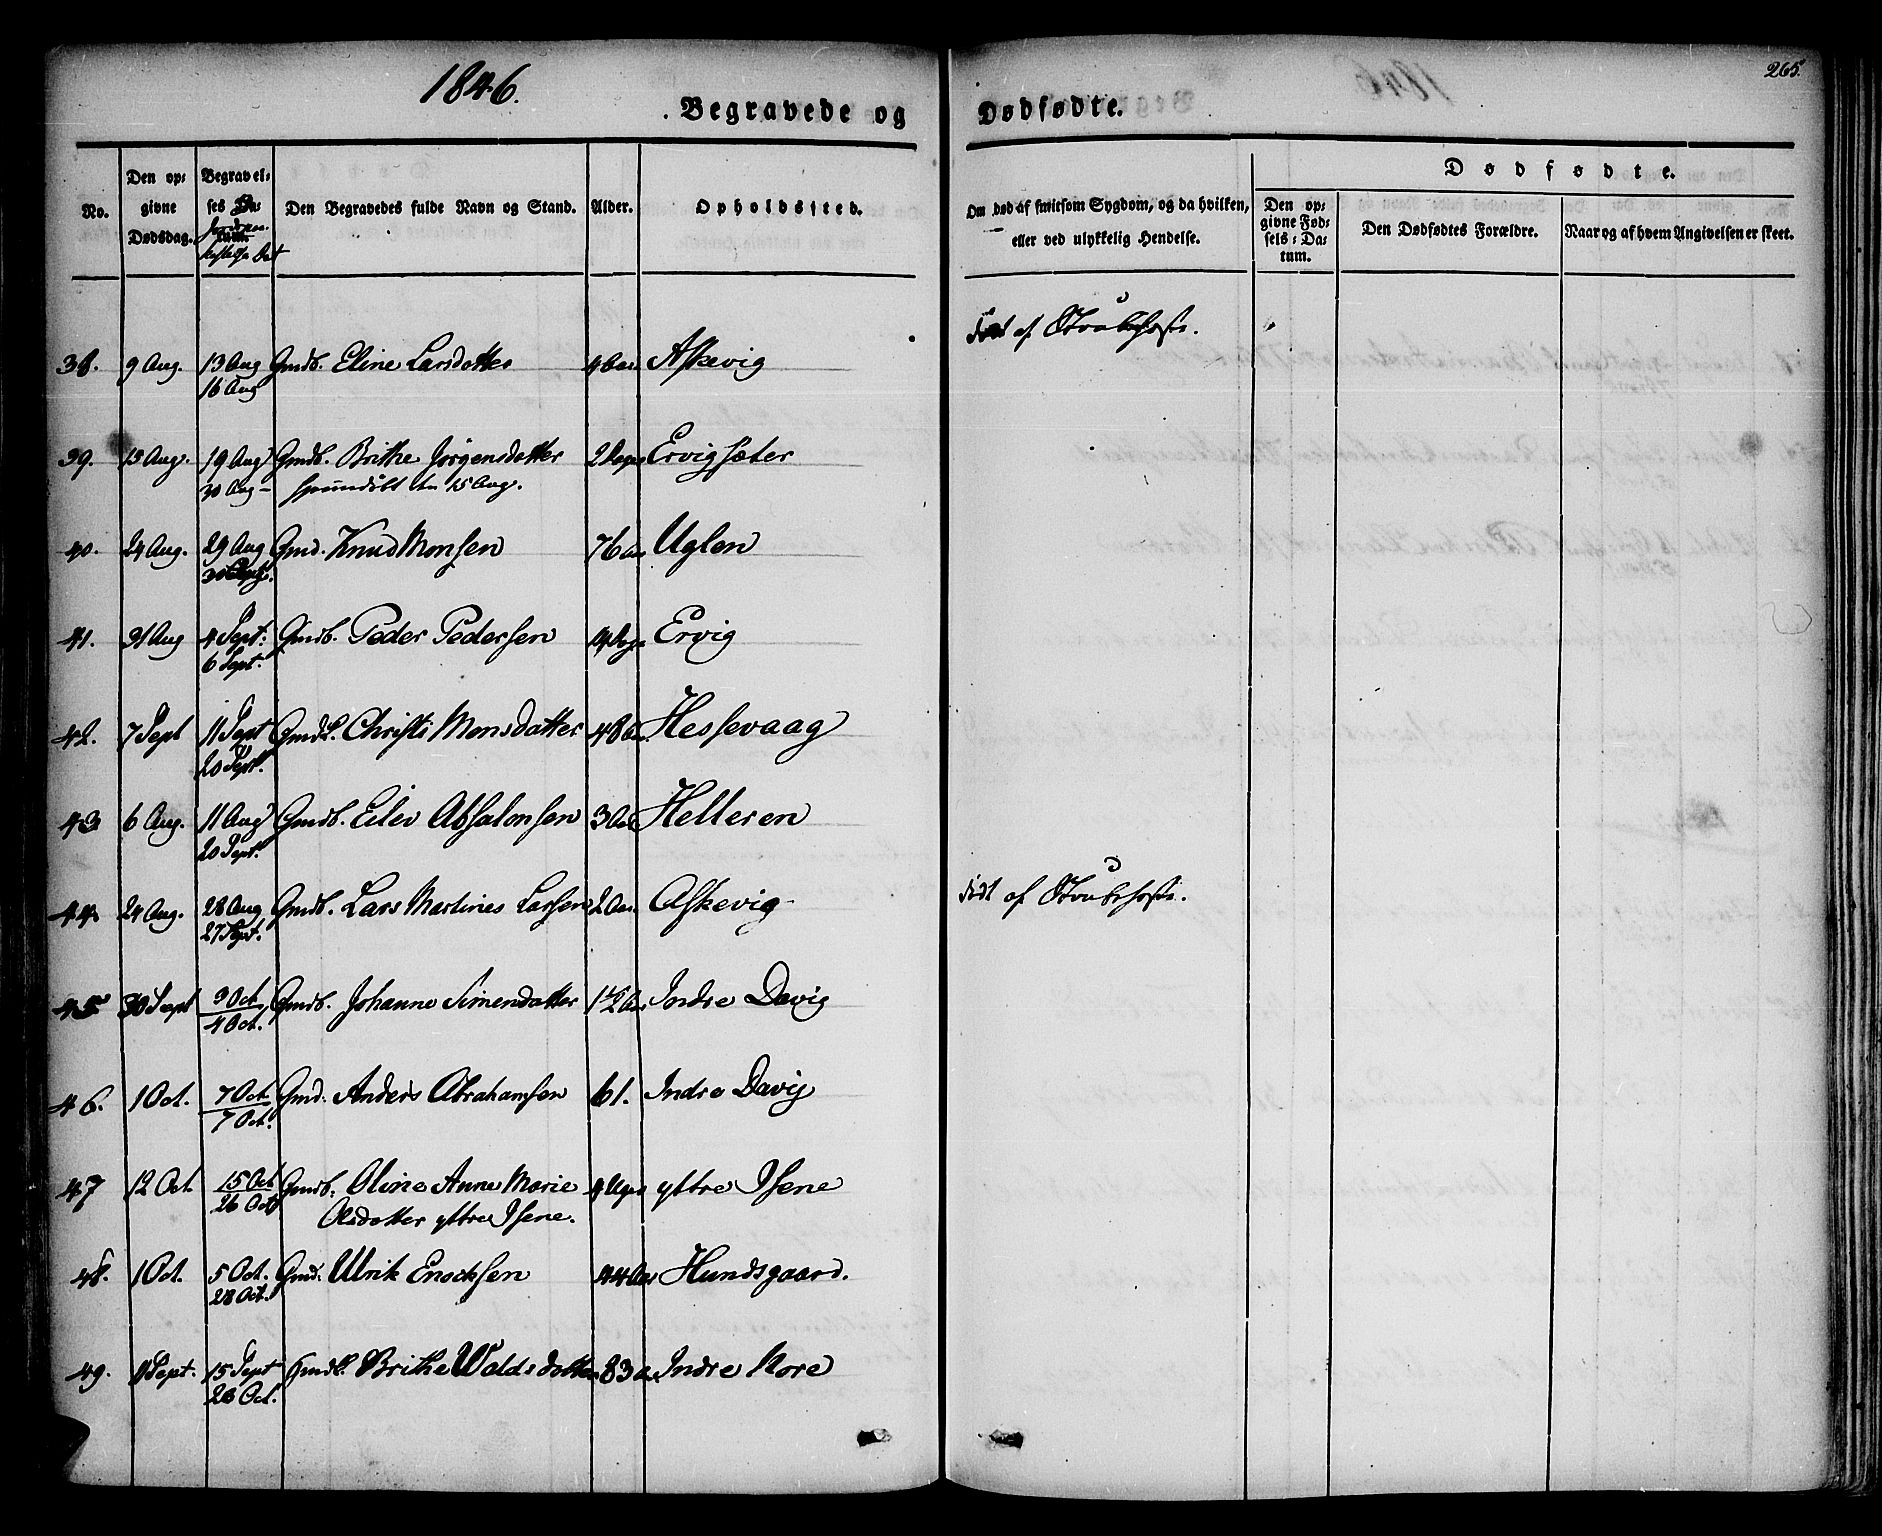 1846.
265.
Begravede og Dødfødte.
No.
Den opgivne Dødsdag.
Begravelses Datum.
Jordpaakastelse Dat
Den Begravedes fulde Navn og Stand.
Alder.
Opholdssted.
Om død af smitsom Sygdom, og da hvilken, eller ved ulykkelig Hendelse.
Dødfødte.
Den opgivne Fødsels-Datum.
Den Dødfødtes Forældre.
Naar og af hvem Angivelsen er skeet.
38. 9 Aug. 13 Aug Gmdb. Eline Larsdatter 4 Aar Askevig død af Strubehoste.
16 Aug
39. 13 Aug. 19 Aug Gmdb. Brithe Jørgensdatter 2 Dage Ervigsæter
30 Aug – hiemdøbt den 15 Aug.
40. 24 Aug. 29 Aug Gmd. Knud Monsen 76 Aar Uglen
41. 31 Aug 4 Sept: Gmdb. Peder Pedersen 14 Dage Ervig
6 Sept.
42. 7 Sept 11 Sept Gmdk. Christi Monsdatter 48 Aar Hessevaag
20 Sept.
43 6 Aug. 11 Aug Gmdb. Eilev Absalonsen 3 Aar Helleren
20 Sept.
44. 24 Aug. 28 Aug Gmdb. Lars Martines Larsen 2 Aar Askevig død af Strubehoste.
27 Sept.
45 30 Sept 3 Oct Gmdb. Johanne Simensdatter 1 1/2 Aar Indre Davig
4 Oct.
46. 1 Oct. 7 Oct. Gmd. Anders Abrahamsen 61. Indre Davig
7 Oct.
47 12 Oct 15 Oct Gmdb. Oline Anne Marie 4 Uger yttre Isene
26 Oct Olsdatter yttre Isene.
48. 1 Oct. 5 Oct. Gmd. Ulrik Enochsen 44 Aar Hundsgaard.
28 Oct.
49. 11 Sept. 15 Sept Gmdk. Brithe Waldsdatter 83 Aar Indre Nore
28 Oct.